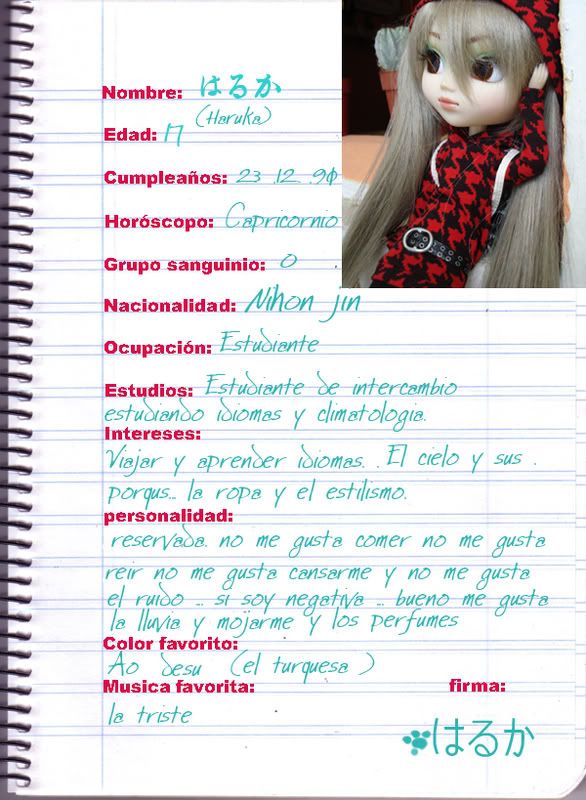 Nombre: はるか
(Haruka)
Edad: 17
Cumpleaños: 23 .12 .90
Horóscopo: Capricornio
Grupo sanguinio: O
Nacionalidad: Nihon jin
Ocupación: Estudiante
Estudios: Estudiante de intercambio
estudiando idiomas y climatologia.
Intereses:
Viajar y aprender idiomas. . El cielo y sus .
porqus... la ropa y el estilismo.
personalidad:
reservada. no me gusta comer no me gusta
reir no me gusta cansarme y no me gusta
el ruido ... si soy negativa ... bueno me gusta
la lluvia y mojarme y los perfumes
Color favorito:
Ao desu (el turquesa )
Musica favorita: firma:
la triste
はるか